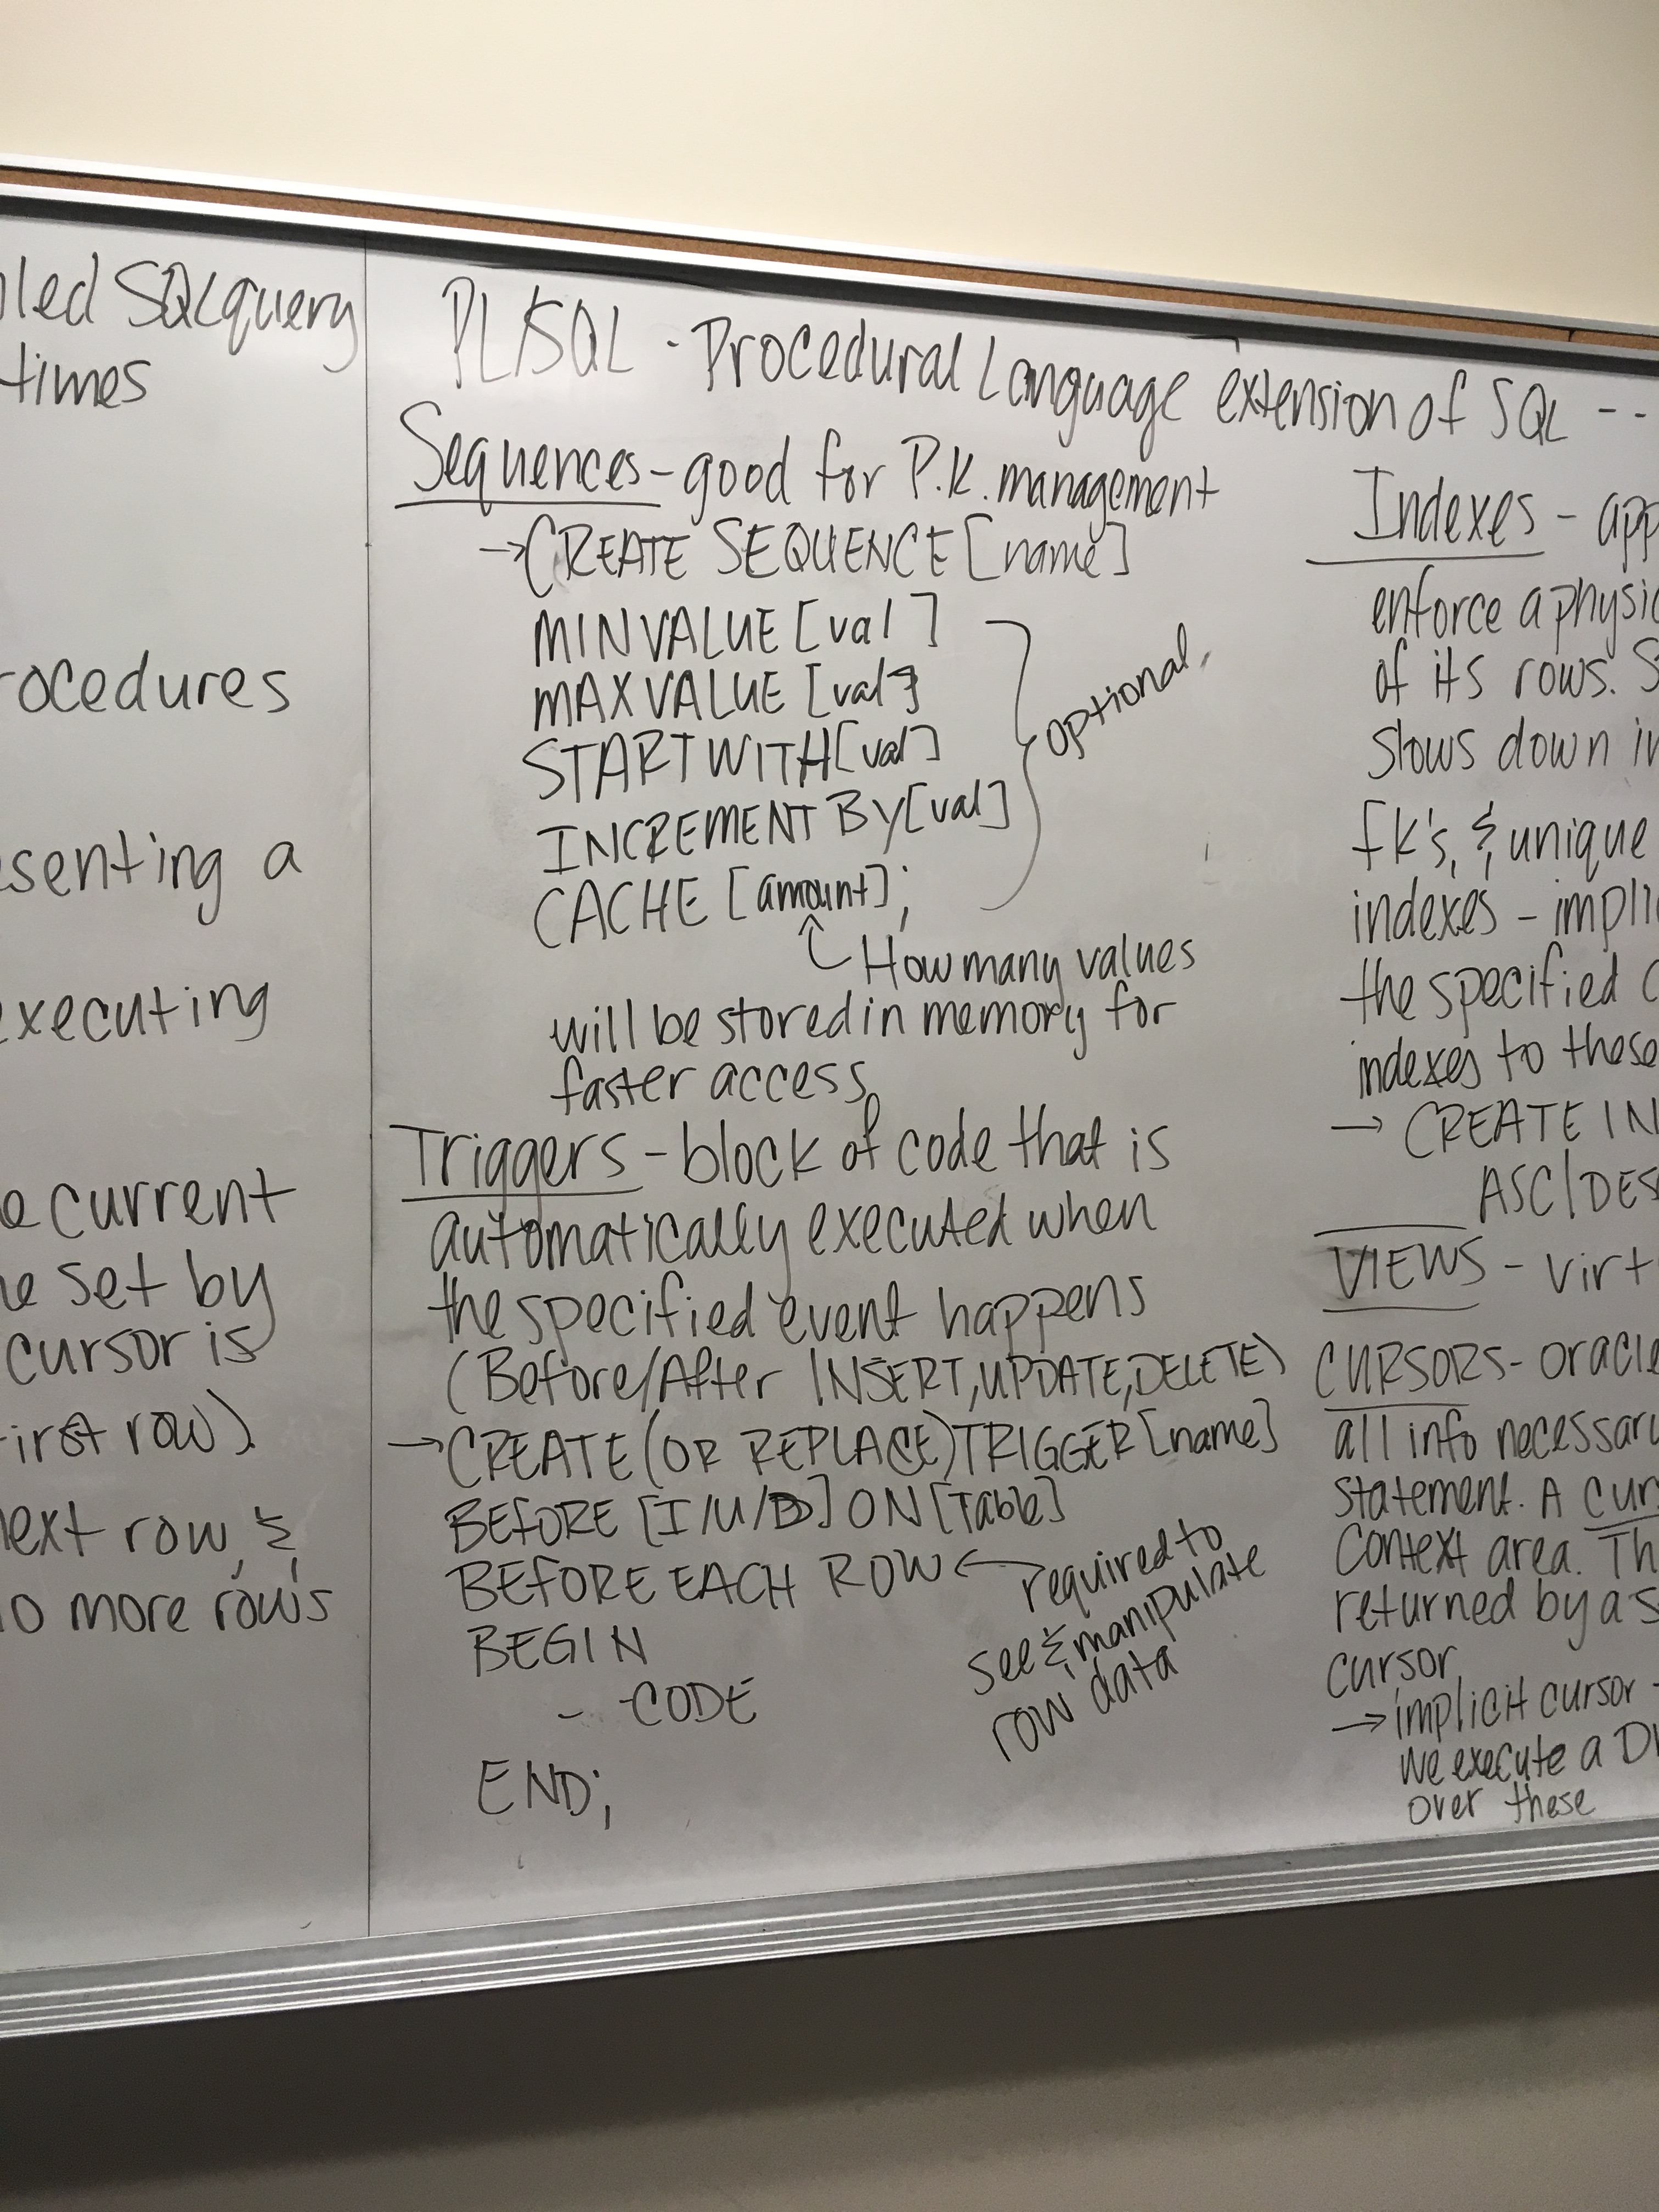 led SQL query
times
rocedures
senting a
executing
e current
e set by
cursor is
first row).
next row, &
o more rows
PL/SQL - Procedural Language extension of SQL --
Sequences - good for P.K. management
→ CREATE SEQUENCE [name]
MINVALUE [val]
MAXVALUE [val]
START WITH [val]
INCREMENT BY [val]
CACHE [amount];
optional
How many values
will be stored in memory for
faster access
Triggers - block of code that is
automatically executed when
the specified event happens
(Before/After INSERT, UPDATE, DELETE)
→ CREATE (OR REPLACE) TRIGGER [name]
BEFORE [I/U/D] ON [Table]
BEFORE EACH ROW ← required to
see & manipulate
row data
BEGIN
- CODE
END;
Indexes - app
enforce a physic
of its rows. S
slows down in
fk's, & unique
indexes - implic
the specified c
indexes to these
→ CREATE IN
ASC/DES
VIEWS - virt
CURSORS - oracle
all info necessary
statement. A curs
context area. Th
returned by a s
cursor
→ implicit cursor -
we execute a D
over these